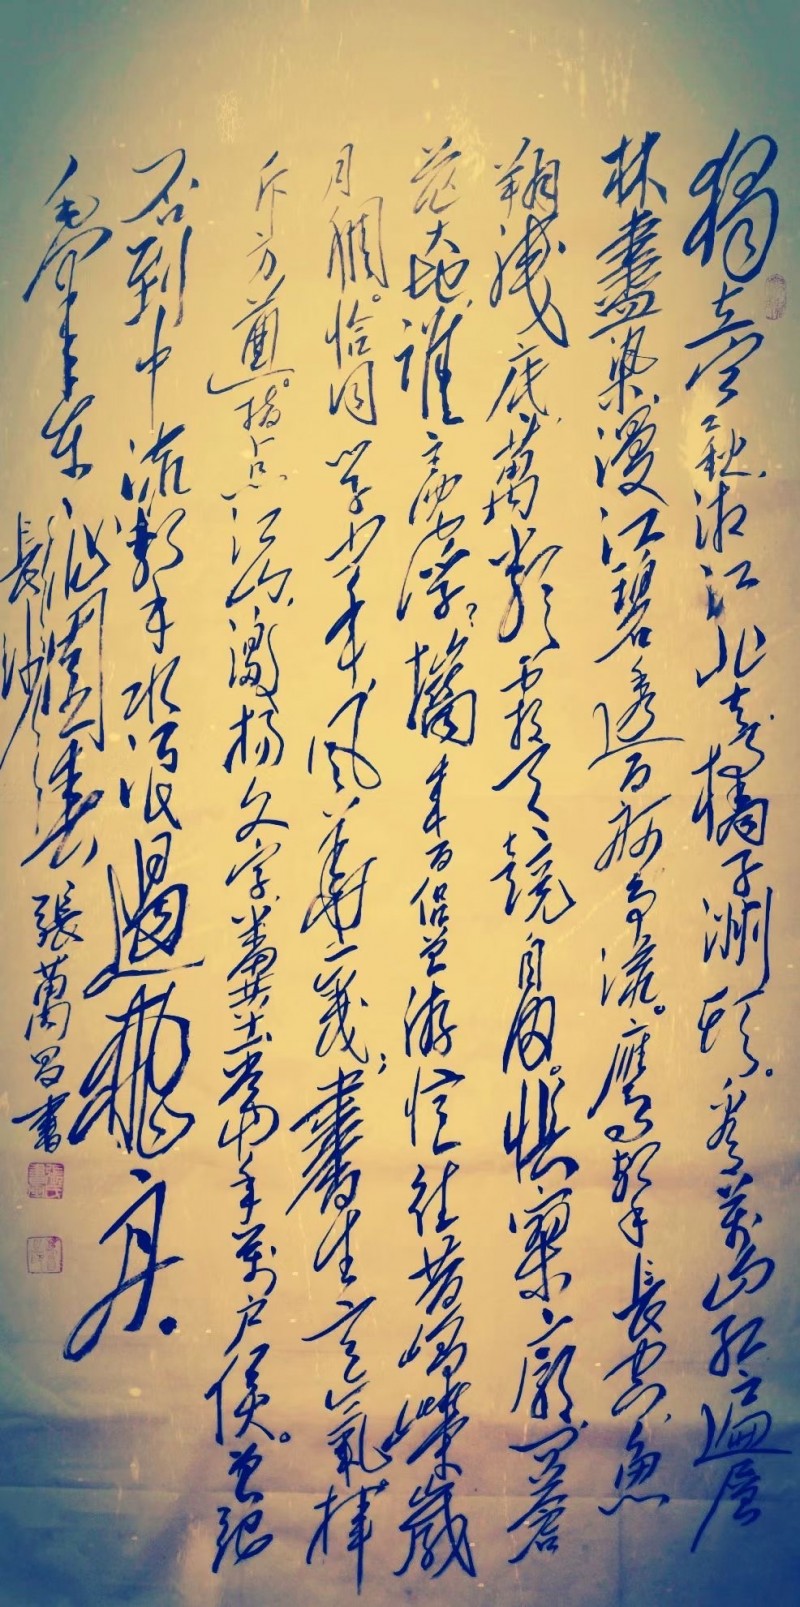 獨立寒秋，湘江北去，橘子洲頭。看萬山紅遍，層
林盡染，漫江碧透，百舸爭流。鷹擊長空，魚
翔淺底，萬類霜天競自由。悵寥廓，問蒼
茫大地，誰主沉浮？攜來百侶曾游，憶往昔崢嶸歲
月稠。恰同學少年，風華正茂；書生意氣，揮
斥方遒。指點江山，激揚文字，糞土當年萬戶侯。曾記
否，到中流擊水，浪遏飛舟。
毛澤東沁園春
長沙
張萬昌書